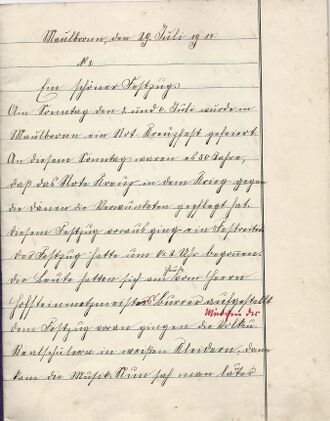 Maulbronn, den 29. Juli 1914
No 8.
Ein schöner Festzug.
Am Sonntag den 5. und 6. Juli wurde in
Maulbronn ein Rot Kreuzfest gefeiert.
An diesem Sonntag waren es 50 Jahre,
daß das Rote Kreuz in dem Krieg gegen
die Dänen die Verwundeten gepflegt hat.
diesem Festzug voraus ging ein Festreiter.
Der Festzug hatte um ½ 3 Uhr begonnen.
die Leute hatten sich am Haus vom Herrn
Hofsteinmetzmeisters Burrer aufgestellt
Mädchen der
dem Festzug voran gingen die Volks u.
Realschülern in weißen Kleidern, dann
kam die Musik. Nun sah man